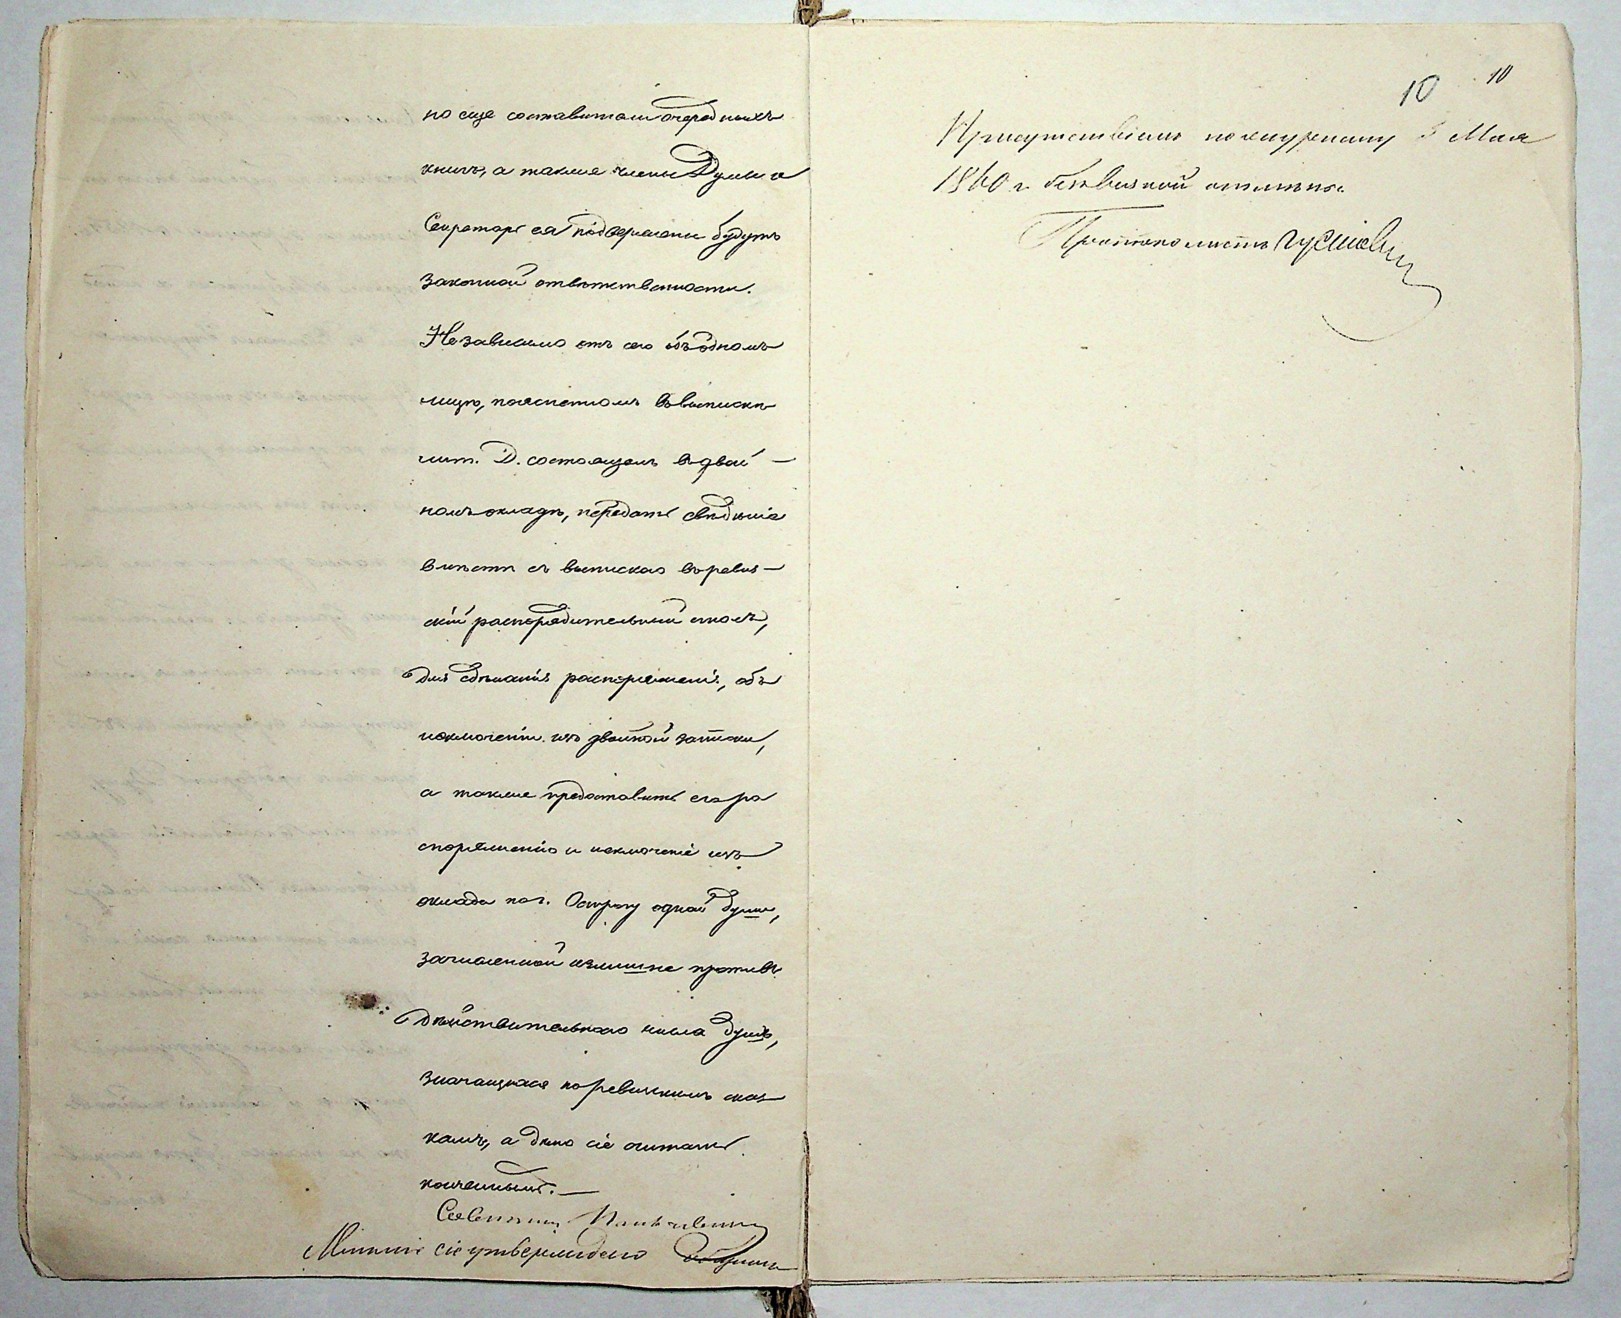 но еще составители очередныхъ
книгъ, а также члены Думы и
Секретарь ея подвержены будутъ
законной отвѣтственности.
Независимо отъ сего объ одномъ
лицѣ, поясненномъ въ выпискѣ
лит. Д. состоящемъ въ двой—
номъ окладѣ, передать свѣдѣнія
вмѣстѣ съ выпискою въ ревиз—
скій распорядительный столъ,
для сдѣланія распоряженія, объ
исключеніи изъ двойной записи,
а также предоставить его ра
споряженію и исключеніе изъ
оклада по г. Острогу одной души,
зачисленной излишне противъ
дѣйствительнаго числа душъ,
значащихся по ревизскимъ сказ
камъ, а дѣло сіе считать
конченнымъ.—
Мнѣніе сіе утверждено
10 10
Присутствіемъ по журналу 5 Мая
1860 г.
Протоколистъ